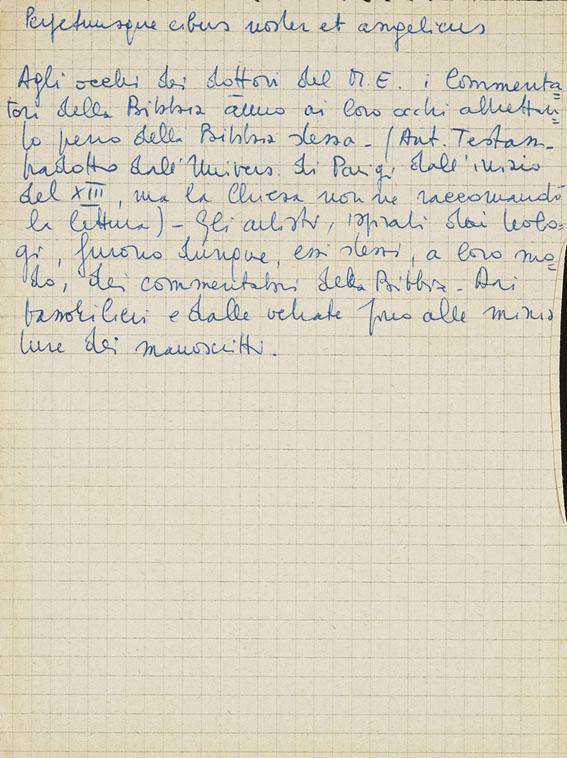 Perpetuusque cibus noster et angelicus
Agli occhi dei dottori del M.E. i Commenta
tori della Bibbia ai loro occhi altrettan
to peso della Bibbia stessa - (Ant. Testam.
tradotto dall'Univers. di Parigi dall'inizio
del XIII, ma la Chiesa non ne raccomandò
la lettura) - Gli artisti, ispirati dai teolo-
gi, furono dunque, essi stessi, a loro mo
do, dei commentatori della Bibbia - Dai
bassorilievi e dalle vetrate fino alle minia
ture dei manoscritti.